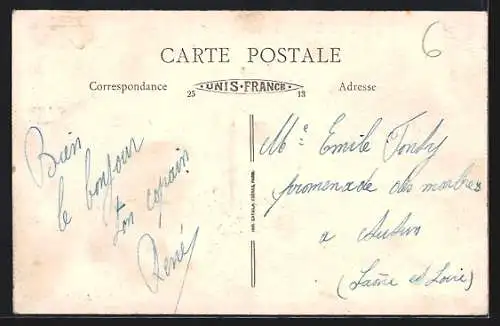 CARTE POSTALE
Correspondance
25 UNIS-FRANCE 13
Adresse
6
Bien
le bonjour
ton copain
René
Mr Emile Tondy
promenade des marbres
a Autun
(Saône et Loire)